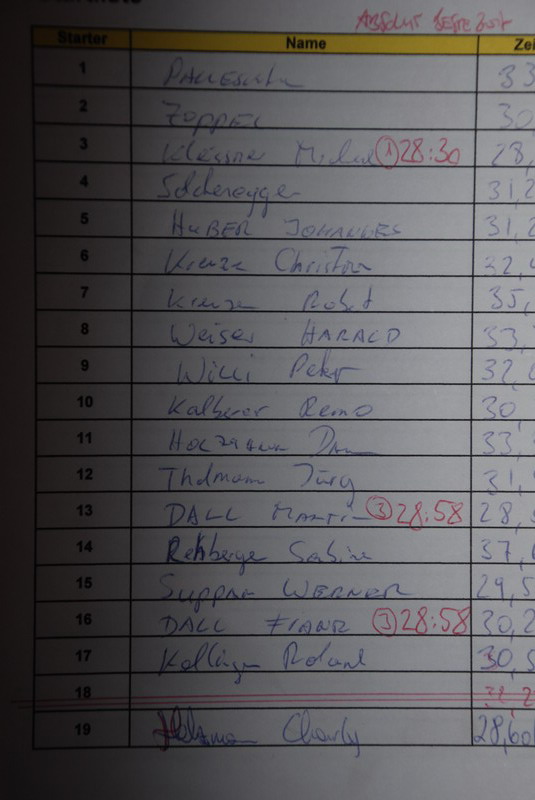 Absolut beste Zeit
Starter Name Zei
1 33
2 Zoppel 30
3 ① 28:30 28,
4 31,2
5 HUBER JOHANNES 31,2
6 Christian 32,
7 Robert 35,
8 Weiser HARALD 33,
9 Willi Peter 32,
10 Kalberer Remo 30,
11 33,
12 Thomann Jürg 31,
13 DALL MARTIN ③ 28:58 28,
14 Rehberge Sabine 37,
15 SUPPAN WERNER 29,5
16 DALL FRANZ ③ 28:58 30,2
17 Roland 30,5
18 31,2
19 Charly 28,60